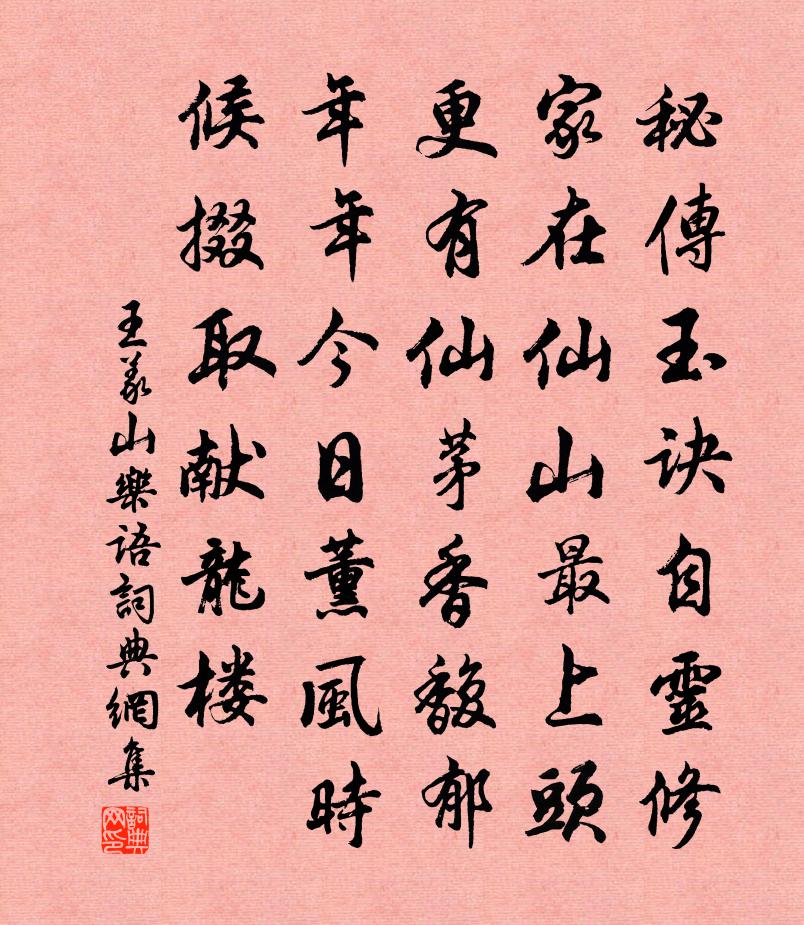 秘傳玉訣自靈修
家在仙山最上頭
更有仙茅香馥郁
年年今日薰風時
候掇取献龍楼
王義山樂語詞典網集
詞典网印